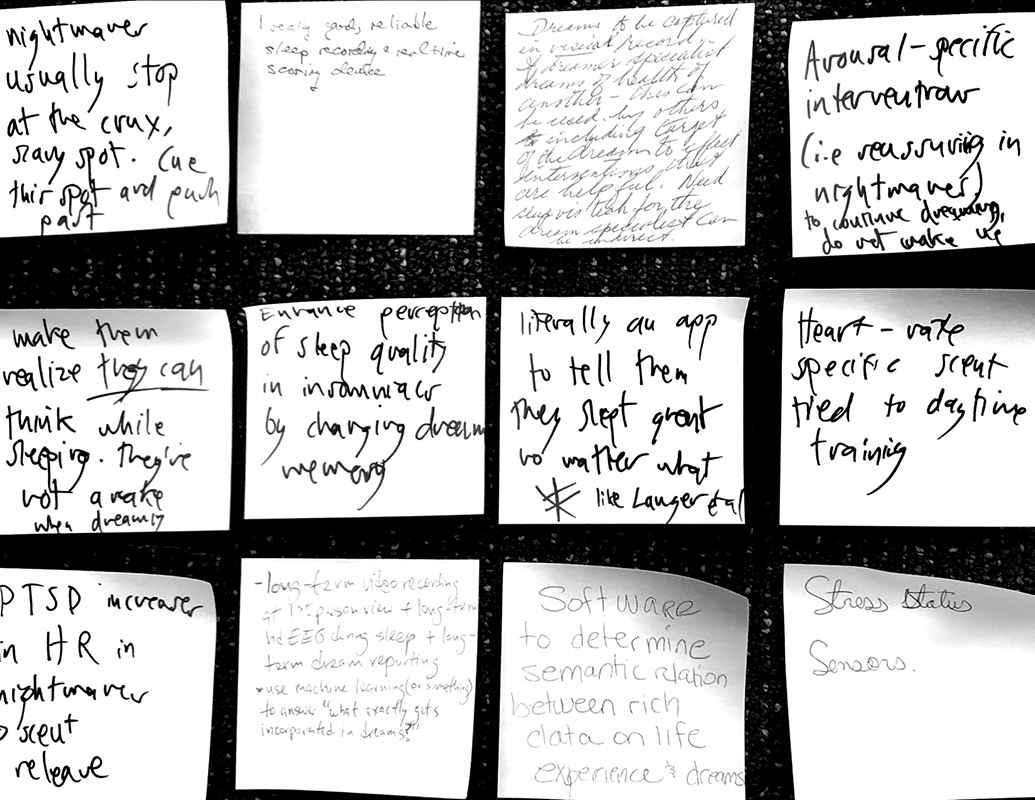 nightmares
usually stop
at the crux,
scary spot. Cue
this spot and push
past
1 really good, reliable
sleep recording & real time
scoring device
Dreams to be captured
in visual record -
A dreamer specialist
dreams of health of
another - this can
be used by others
including target
of the dream to effect
interventions that
are helpful. Need
for the
dream specialist can
be indirect.
Arousal-specific
interventions
(i.e reassuring in
nightmares)
to continue dreaming,
do not wake up
make them
realize they can
think while
sleeping. They're
not awake
when dreaming
Enhance perception
of sleep quality
in insomniacs
by changing dream
memory
literally an app
to tell them
they slept great
no matter what
like Langer et al
Heart-rate
specific scent
tied to daytime
training
PTSD increases
in HR in
nightmares
scent
release
-long-term video recording
at 1st person view + long-term
hd EEG during sleep + long-
term dream reporting
*use machine learning (or something)
to answer "what exactly gets
incorporated in dreams?"
Software
to determine
semantic relation
between rich
data on life
experience & dreams
Stress Status
Sensors.